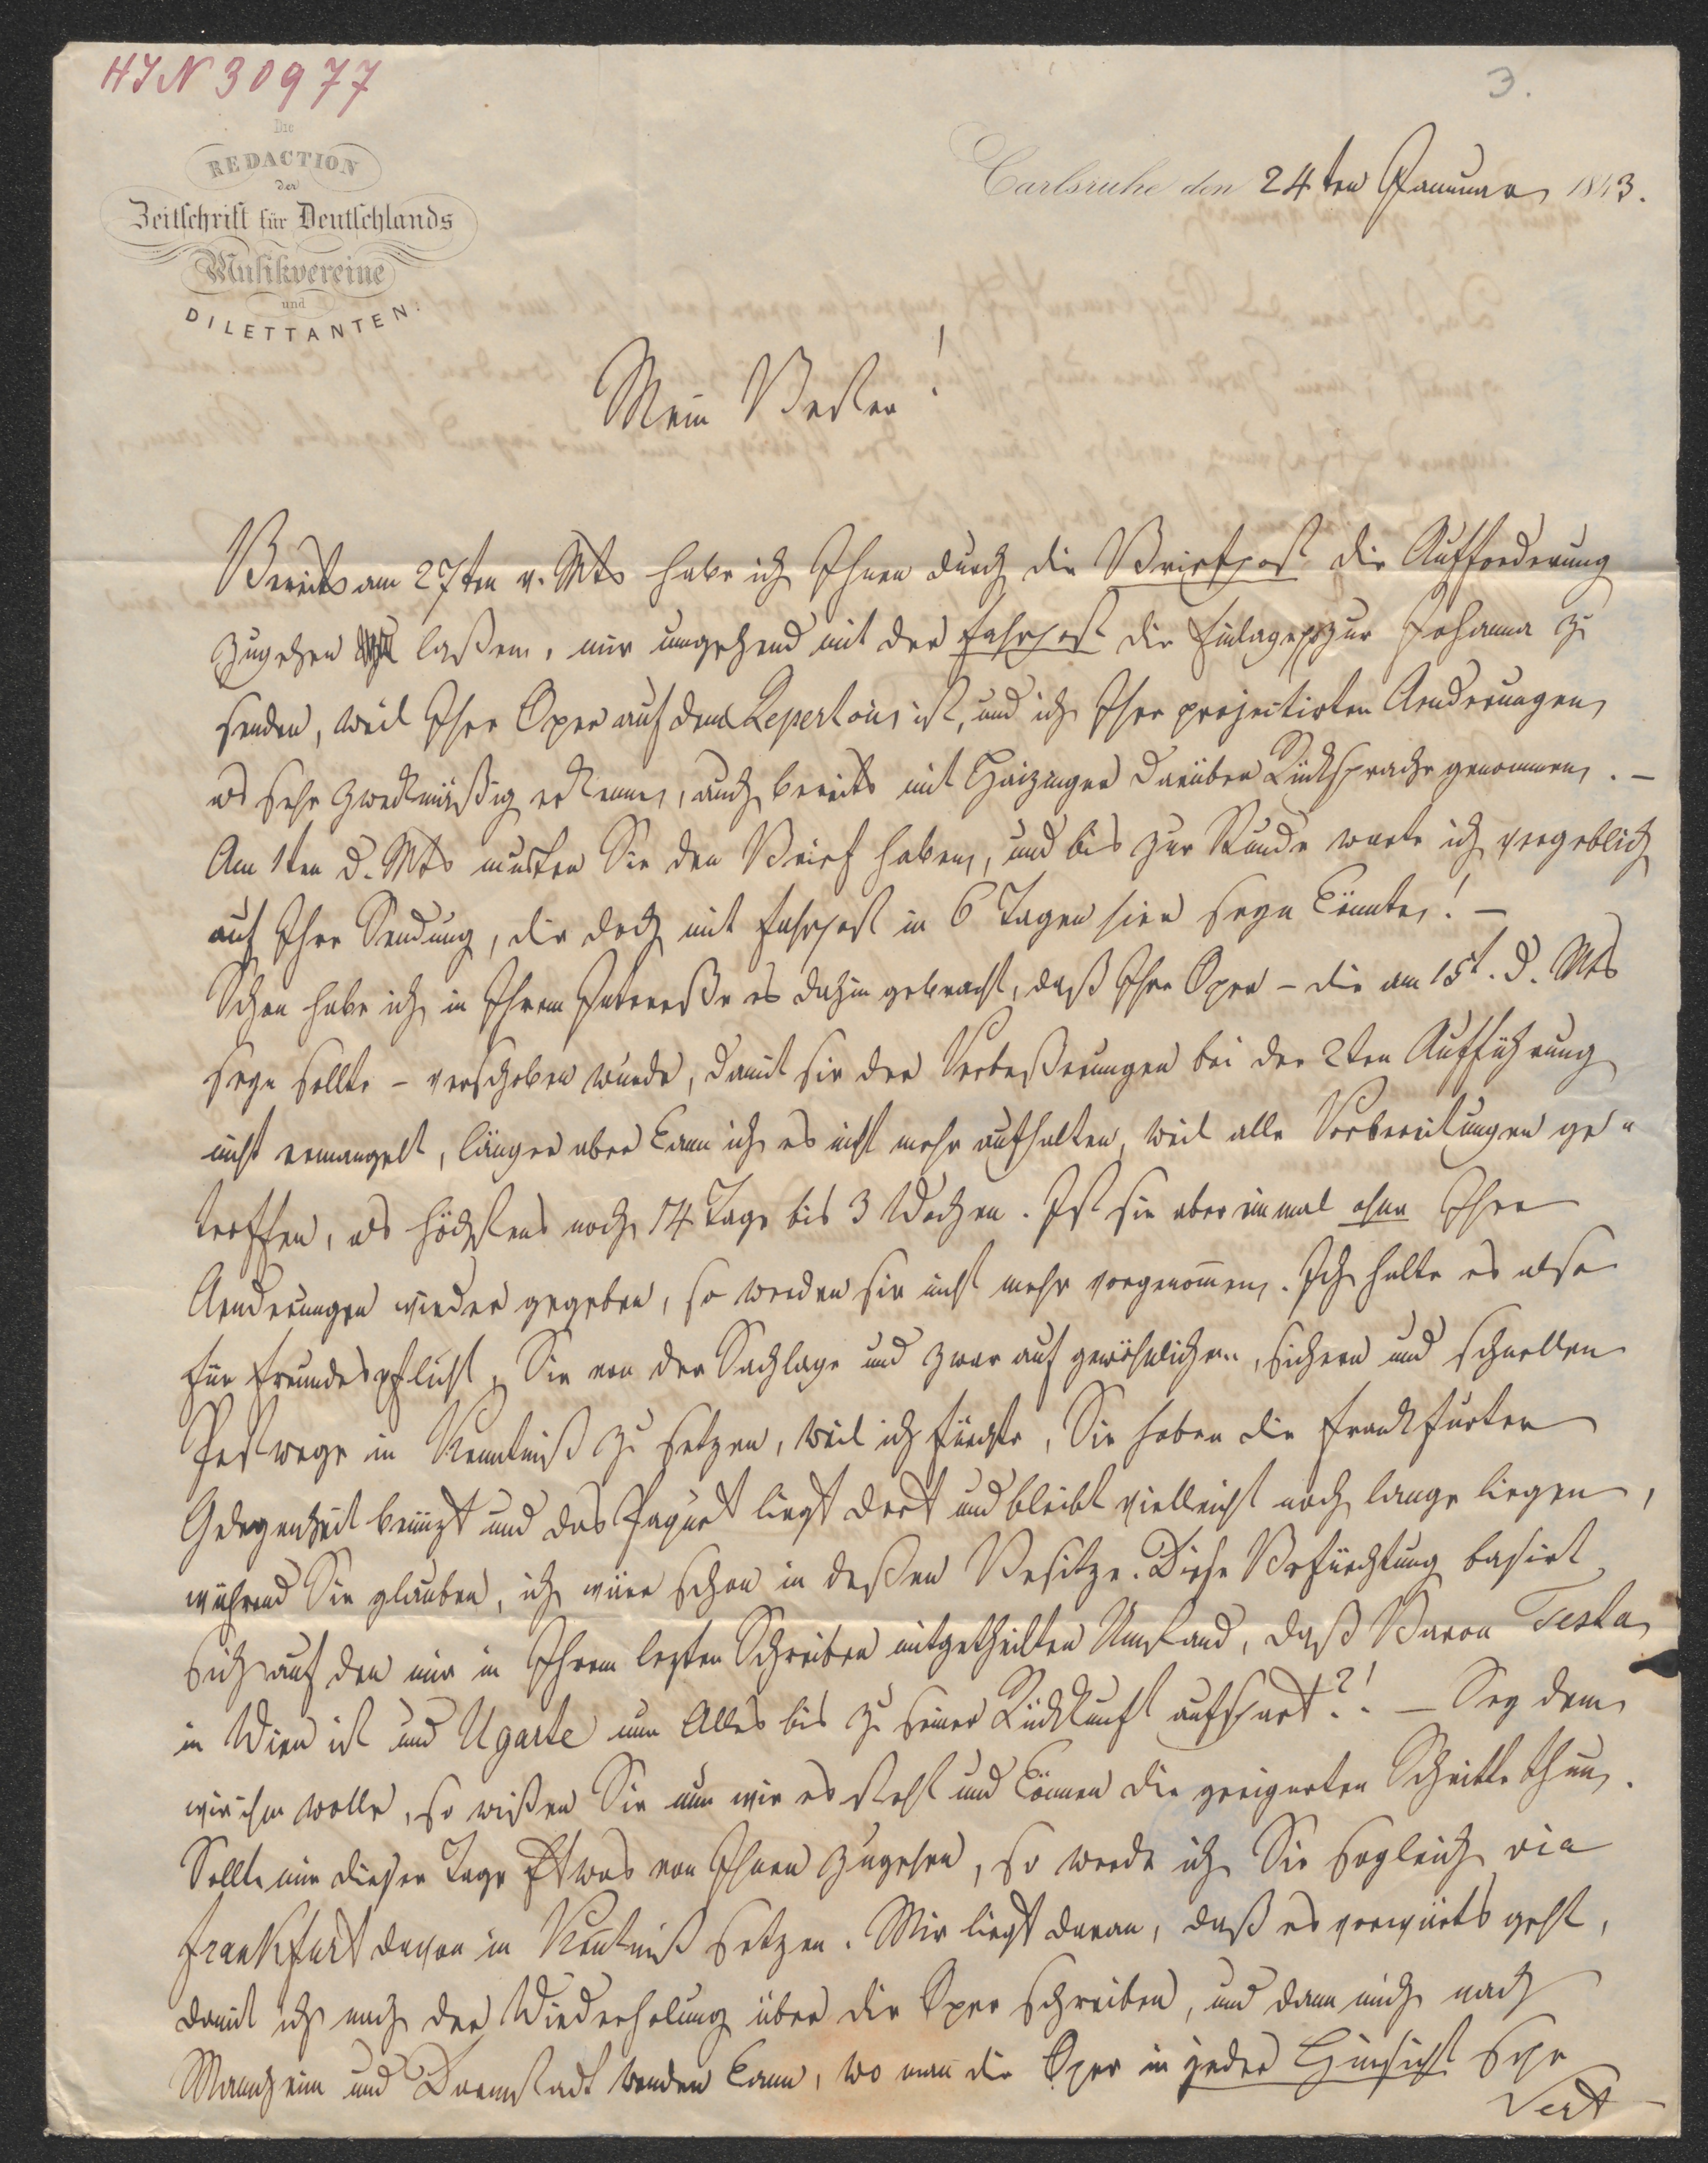 HIN 30977
3.
Die
REDACTION
der
Zeitschrift für Deutschlands
Musikvereine
und
DILETTANTEN.
Carlsruhe den 24ten Januar 1843.
Mein Bester!
Bereits am 27ten v. Mts habe ich Ihnen durch die Briefpost die Aufforderung
zugehen laßen, mir umgehend mit der Fahrpost die Einlagen zur Johanna zu
senden, weil Ihre Oper auf dem Repertoir ist, und ich Ihre projectirten Aenderungen
als sehr zweckmäßig erkenne, auch bereits mit Haizinger darüber Rücksprache genommen. –
Am 1ten d. Mts mußten Sie den Brief haben, und bis zur Stunde warte ich vergeblich
auf Ihre Sendung, die doch mit Fahrpost in 6 Tagen hier seyn könnte! –
Schon habe ich in Ihrem Intereße es dahin gebracht, daß Ihre Oper – die am 15t. d. Mts
seyn sollte – verschoben wurde, damit sie der Verbeßerungen bei der 2ten Aufführung
nicht ermangelt, länger aber kann ich es nicht mehr aufhalten, weil alle Vorbereitungen ge-
troffen, als höchstens noch 14 Tage bis 3 Wochen. Ist sie aber einmal ohne Ihre
Aenderungen wieder gegeben, so werden sie nicht mehr vorgenommen. Ich halte es also
für Freundespflicht, Sie von der Sachlage und zwar auf gewöhnlichem, sichern und schnellen
Postwege in Kenntniß zu setzen, weil ich fürchte, Sie haben die Frankfurter
Gelegenheit benüzt und das Paquet liegt dort und bleibt vielleicht noch lange liegen,
während Sie glauben, ich wäre schon in deßen Besitze. Diese Befürchtung basirt
sich auf den mir in Ihrem lezten Schreiben mitgetheilten Umstand, daß Baron Testa
in Wien ist und Ugarte nun Alles bis zu seiner Rückkunft aufspart?! – Sey dem
wie ihm wolle, so wißen Sie nun wie es steht und können die geeigneten Schritte thun.
Sollte mir dieser Tage Etwas von Ihnen zugehen, so werde ich Sie sogleich via
Frankfurt davon in Kenntniß setzen. Mir liegt daran, daß es vorwärts geht,
damit ich nach der Wiederholung über die Oper schreiben, und dann mich nach
Manheim und Darmstadt wenden kann, wo man die Oper in jeder Hinsicht sehr
Vert –